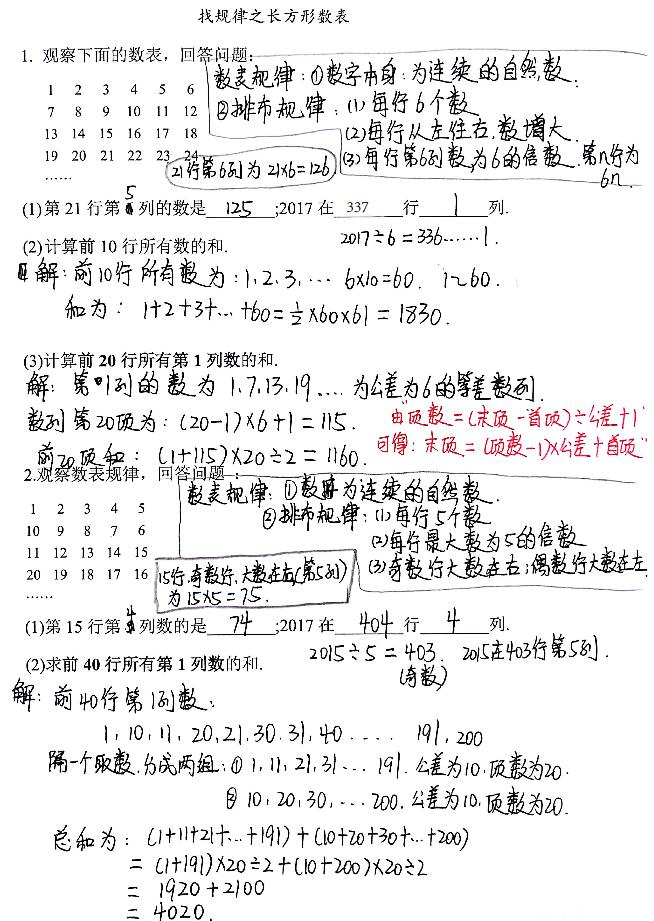 找规律之长方形数表
1. 观察下面的数表，回答问题:
数表规律：①数字本身：为连续的自然数.
1 2 3 4 5 6
②排布规律：(1)每行6个数
7 8 9 10 11 12
(2)每行从左往右,数增大.
13 14 15 16 17 18
(3)每行第6列数,为6的倍数.第n行为6n.
19 20 21 22 23 24
21行第6列为21×6=126
……
(1)第 21 行第5列的数是 125 ;2017 在 337 行 1 列.
2017÷6=336……1.
(2)计算前 10 行所有数的和.
解：前10行所有数为：1,2,3,… 6×10=60. 1~60.
和为：1+2+3+…+60=½×60×61=1830.
(3)计算前 20 行所有第 1 列数的和.
解：第1列的数为 1,7,13,19….为公差为6的等差数列.
数列第20项为：(20-1)×6+1=115.
"由项数=(末项-首项)÷公差+1
前20项和：(1+115)×20÷2=1160.
可得：末项=(项数-1)×公差+首项"
2.观察数表规律，回答问题：
数表规律：①数字为连续的自然数.
1 2 3 4 5
②排布规律：(1)每行5个数
10 9 8 7 6
(2)每行最大数为5的倍数
11 12 13 14 15
(3)奇数行大数在右；偶数行大数在左
20 19 18 17 16
15行,奇数行,大数在右(第5列)
为15×5=75.
……
(1)第 15 行第4列数的是 74 ;2017 在 404 行 4 列.
2015÷5=403. 2015在403行第5列.
(奇数)
(2)求前 40 行所有第 1 列数的和.
解：前40行第1列数：
1,10,11,20,21,30,31,40.... 191,200
隔一个取数,分成两组：①1,11,21,31…191.公差为10,项数为20.
②10,20,30,…200,公差为10,项数为20.
总和为：(1+11+21+…+191)+(10+20+30+…+200)
=(1+191)×20÷2+(10+200)×20÷2
=1920+2100
=4020.